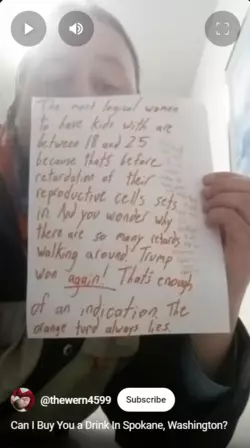 The most logical women
to have kids with are
between 18 and 25
because thats before
retardation of their
reproductive cells sets
in. And you wonder why
there are so many retards
walking around. Trump
won again! That's enough
of an indication. The
orange turd always lies.
@thewern4599
Subscribe
Can I Buy You a Drink In Spokane, Washington?